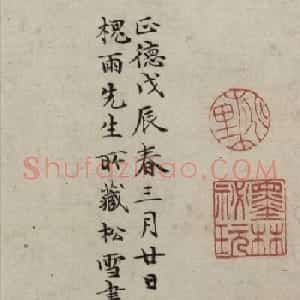 正德戊辰春三月廿日
槐雨先生所藏松雪書
Shufazidao.com
墨林